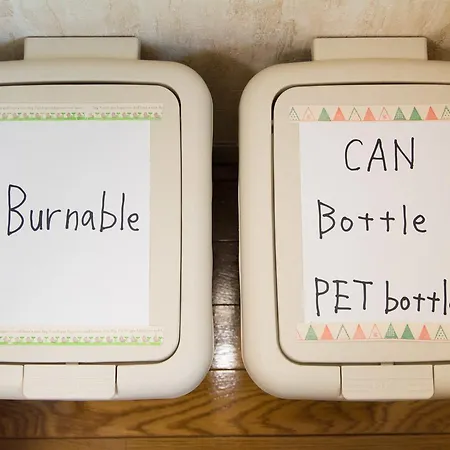 Burnable
CAN
Bottle
PET bottle